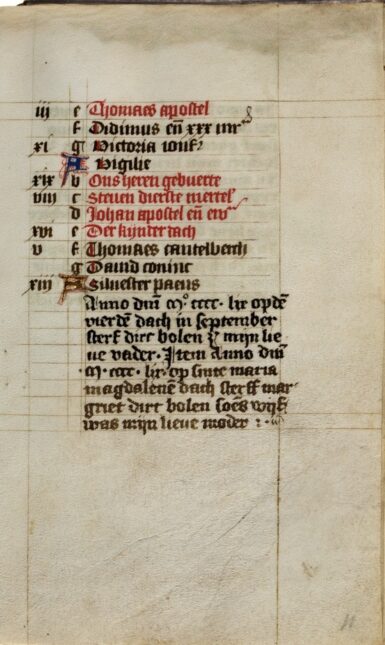 iii e Thomaes apostel
f Didimus en̄ xxx mr
xi g Victoria ionf
A Vigilie
xix b Ons heren gebuerte
viii c Steven dierste mertel
d Johan apostel en̄ ew
xvi e Der kijnder dach
v f Thomaes cantelberch
g David coninc
xiii A Silvester paeus
Anno dm̄ M° cccc · lix op dē
vierdē dach in september
sterf dirc bolen mijn lie
ve vader · Item Anno dm̄
· M · cccc · lix · op sinte maria
magdalenen dach sterff mar
griet dirc bolen soēs wijf
was mijn lieve moder